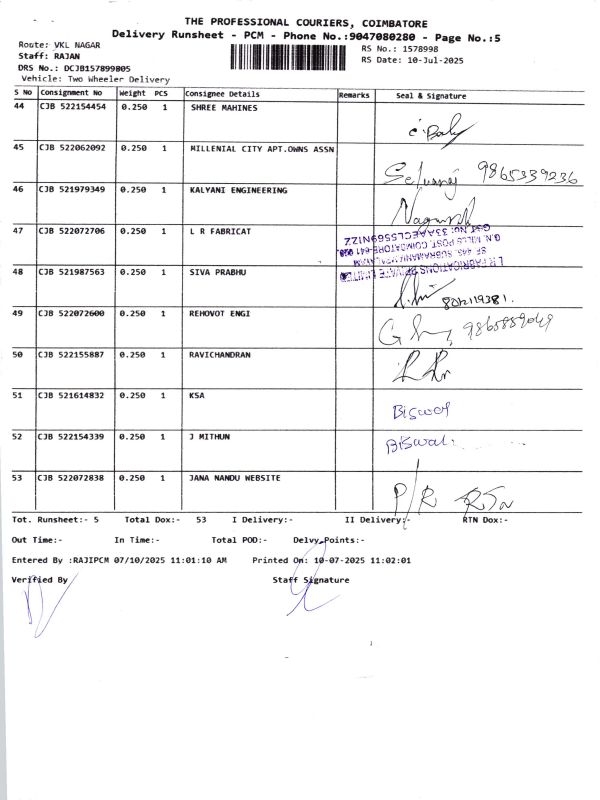 THE PROFESSIONAL COURIERS, COIMBATORE
Delivery Runsheet - PCM - Phone No.:9047080280 - Page No.:5
Route: VKL NAGAR
RS No.: 1578998
Staff: RAJAN
RS Date: 10-Jul-2025
DRS No.: DCJB157899805
Vehicle: Two Wheeler Delivery
S NO Consignment No Weight PCS Consignee Details Remarks Seal & Signature
44 CJB 522154454 0.250 1 SHREE MAHINES
45 CJB 522062092 0.250 1 MILLENIAL CITY APT.OWNS ASSN
Selvaraj 9865339236
46 CJB 521979349 0.250 1 KALYANI ENGINEERING
47 CJB 522072706 0.250 1 L R FABRICAT
L R FABRICATIONS PRIVATE LIMITED
SF 445, SUBRAMANIAMPALAYAM
G.N. MILLS POST, COIMBATORE-641
GST No: 33AAECL5569N1ZZ
48 CJB 521987563 0.250 1 SIVA PRABHU
49 CJB 522072600 0.250 1 REHOVOT ENGI
50 CJB 522155887 0.250 1 RAVICHANDRAN
51 CJB 521614832 0.250 1 KSA
Biswal
52 CJB 522154339 0.250 1 J MITHUN
Biswal
53 CJB 522072838 0.250 1 JANA NANDU WEBSITE
P/R
Tot. Runsheet:- 5 Total Dox:- 53 I Delivery:- II Delivery:- RTN Dox:-
Out Time:- In Time:- Total POD:- Delvy.Points:-
Entered By :RAJIPCM 07/10/2025 11:01:10 AM Printed On: 10-07-2025 11:02:01
Verified By Staff Signature